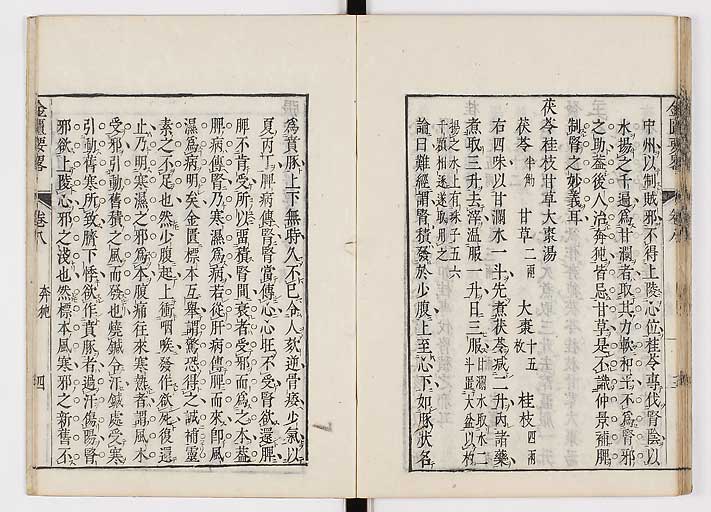 中州以制賊邪不得上陵心位桂苓專伐腎陰以
水揚之千遍爲甘瀾者取其力軟和北不爲腎邪
之助益後人治奔㹠皆忌甘草是不識仲景補脾
制腎之妙義耳
茯苓桂枝甘草大棗湯
茯苓半觔 甘草二兩 大棗十五枚 桂枝四兩
右四味以甘瀾水一斗先煮茯苓減二升內諸藥
煮取三升去滓溫服一升日三服甘瀾水取水二斗置大盆以杓
揚之水上有珠子五六
千顆相逐取用之
論曰難經謂腎積發於少腹上至心下如豚狀名
金匱要畧
卷八
爲賁豚上下無時久不已令人欬逆骨痿少氣以
夏丙丁脾病傳腎腎當傳心心旺不受腎欲還脾
脾不肯受所以畱積腎間衰者受邪而爲之本葢
脾病傳腎乃寒濕爲病若從肝病傳脾而來卽風
濕爲病明矣金匱標本互舉謂驚恐得之誡補靈
素之不足也然少腹起上衝咽喉發作欲死復還
止乃明寒濕之邪爲本腹痛往來寒熱者謂風木
受邪引動舊積之風而發也燒鍼令汗鍼處受寒
引動舊寒所致臍下悸欲作賁豚者過汗傷陽腎
邪欲上陵心邪之淺也然標本風寒邪之新舊不
金匱要畧
卷八
奔㹠
四